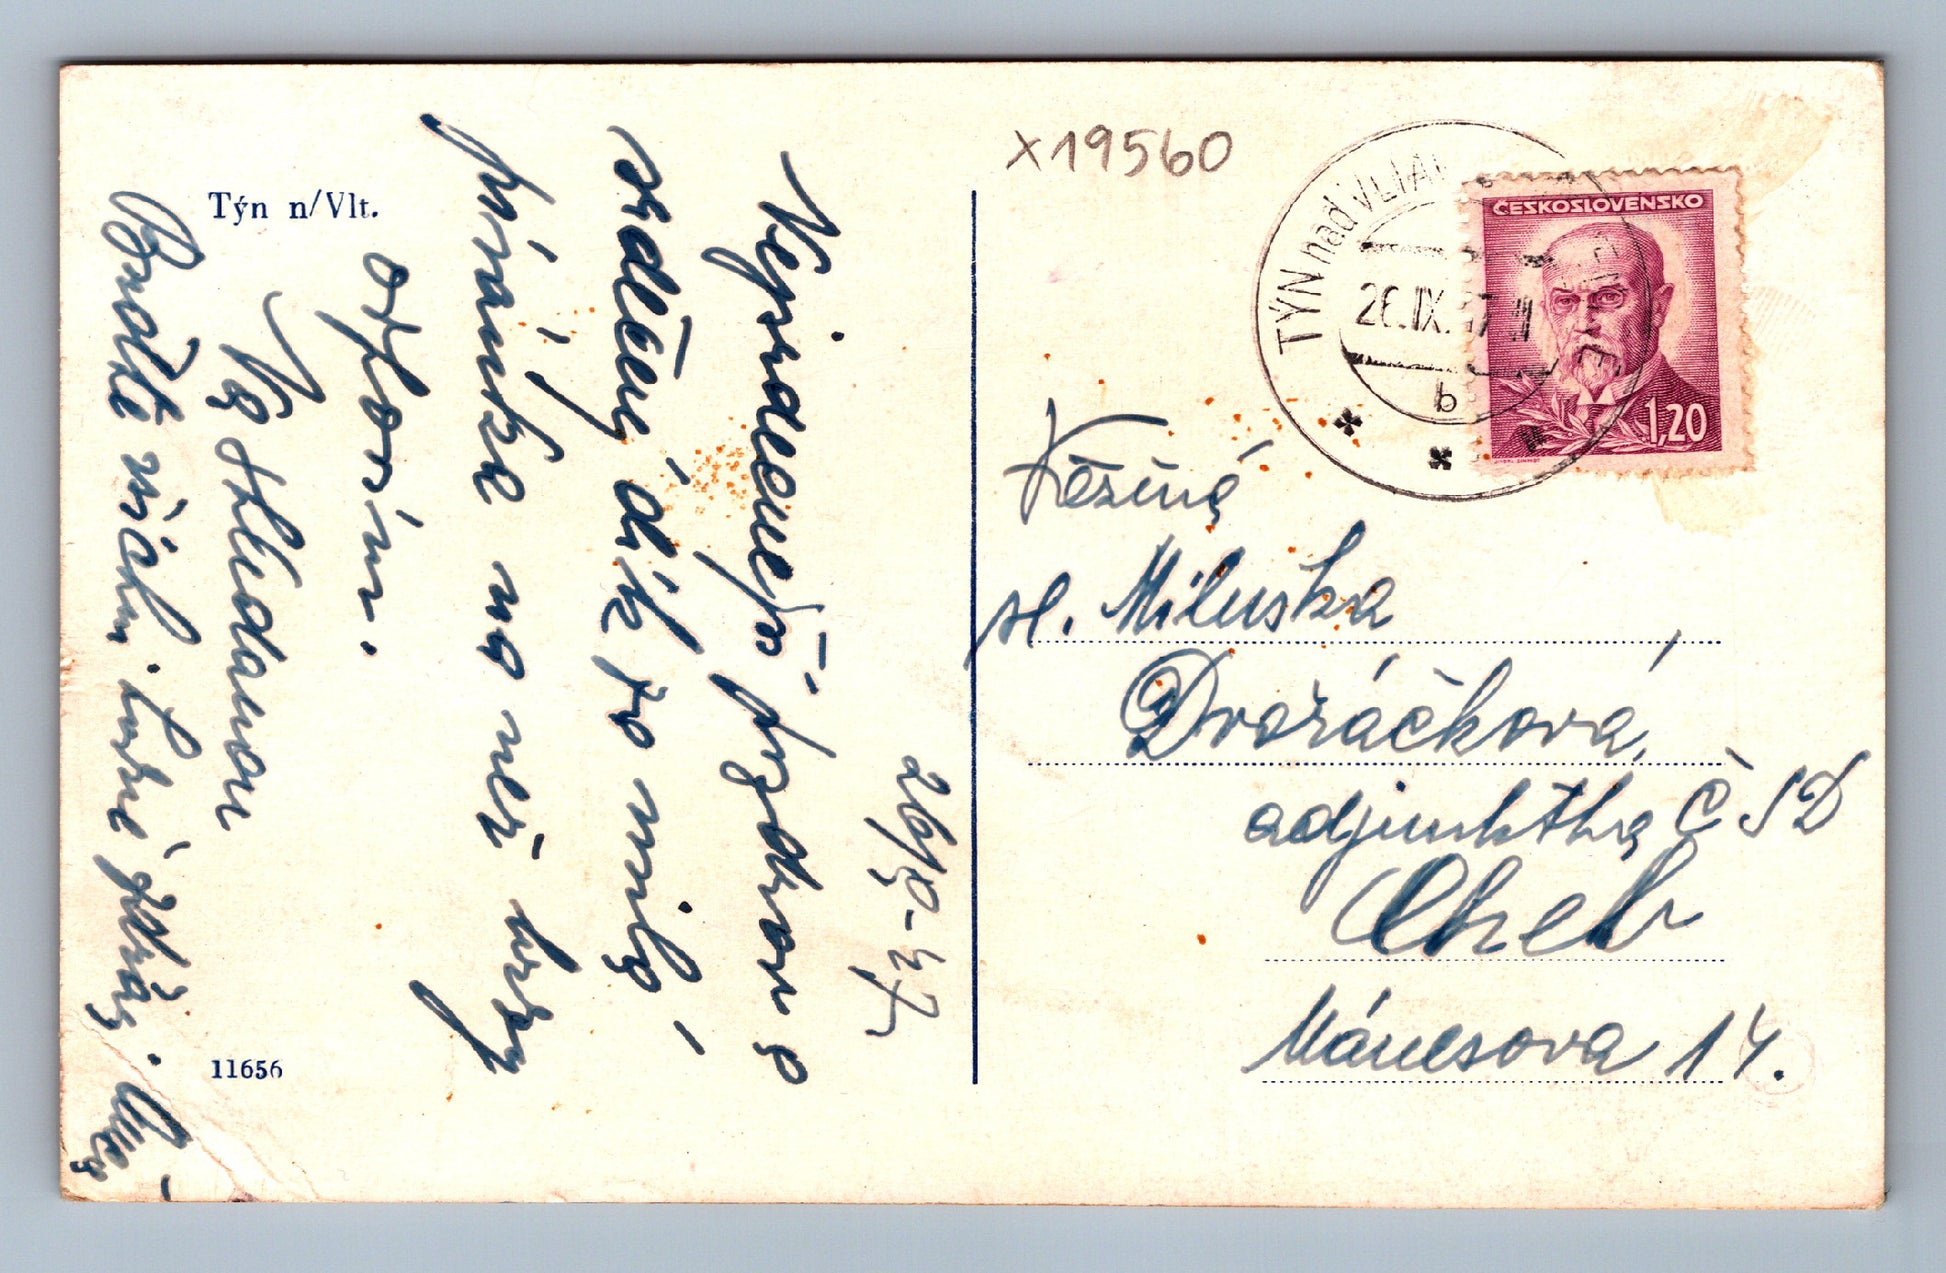 Týn n/Vlt.
11656
26/9-47
Nejsrdečnější pozdrav a
srdečný dík za milé
psaníčko na než brzy
odpovím.
Váš
Buďte
x19560
TÝN nad VLTAV
26.IX.47
b
ČESKOSLOVENSKO
1,20
Vážená
sl. Miluška
Dvořáčková,
adjunktka ČSD
Cheb
Mánesova 14.